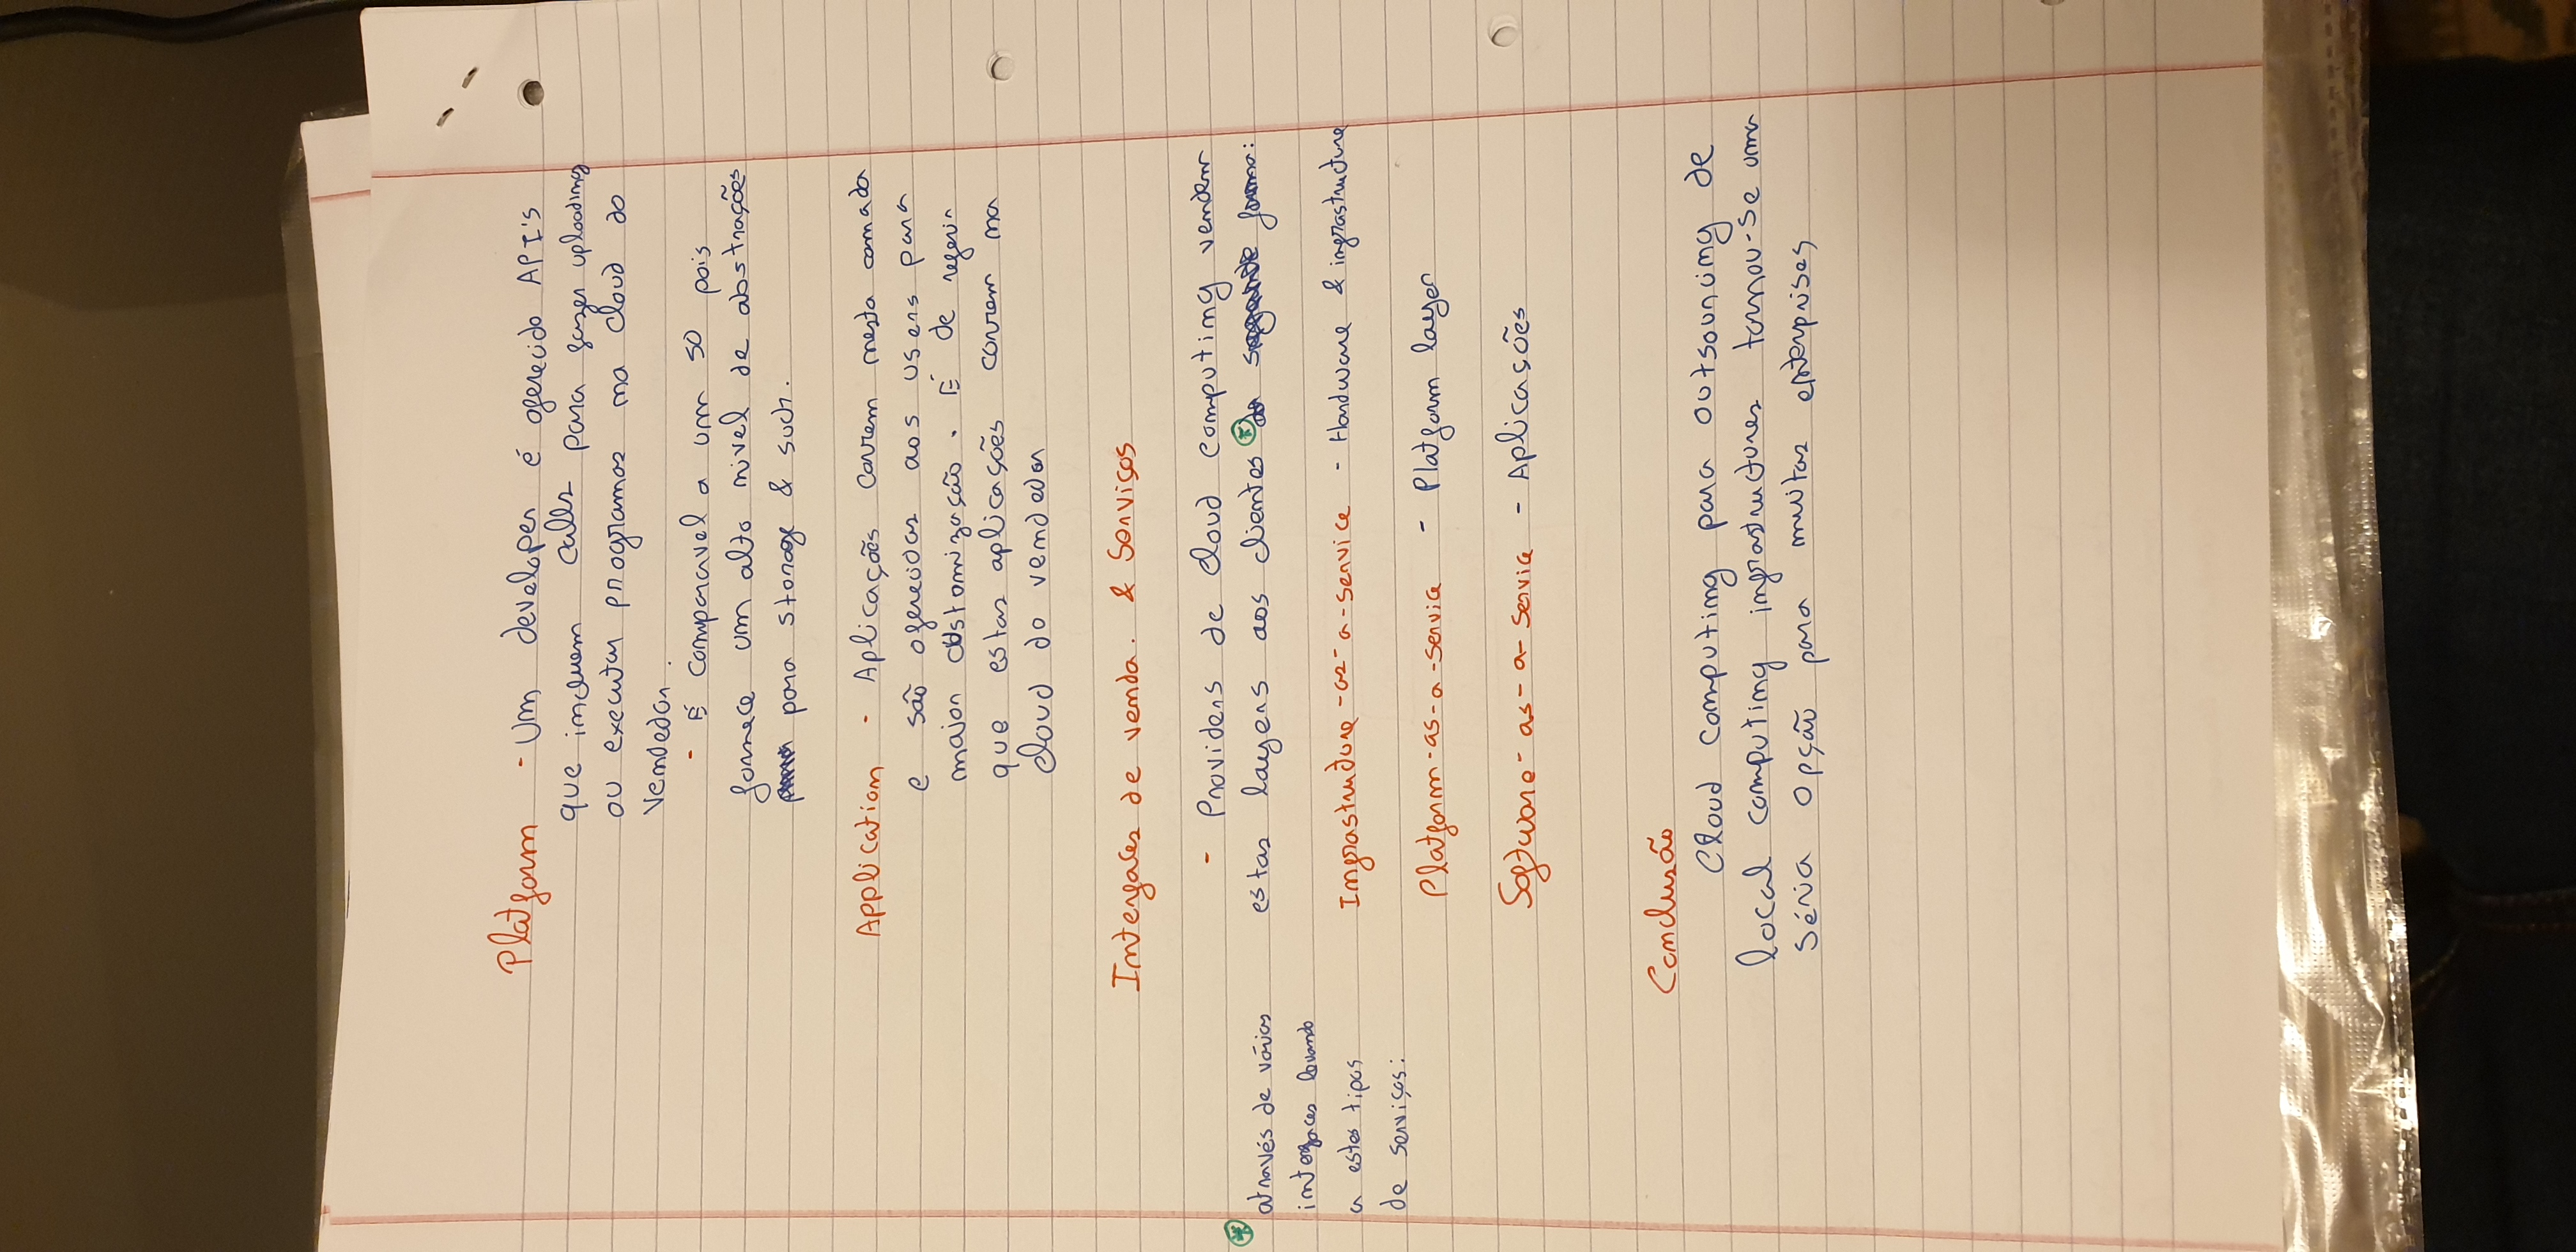 Platform - Um developer é oferecido API's
que incluem calls para fazer uploading
ou executar programas na cloud do
vendedor.
- É comparavel a um SO pois
fornece um alto nivel de abstrações
para storage & such.
Application - Aplicações correm nesta camada
e são oferecidas aos users para
maior customização. É de referir
que estas aplicações correm na
cloud do vendedor
Interfaces de venda. & Serviços
- Providers de cloud computing vendem
estas layers aos clientes * da seguinte forma:
* através de vários
interfaces levando
a estes tipos
de serviços:
Infrastructure-as-a-service - Hardware & infrastructure
Platform-as-a-service - Platform layer
Software-as-a-service - Aplicações
Conclusão
Cloud computing para outsourcing de
local computing infrastructures tornou-se uma
séria opção para muitas enterprises